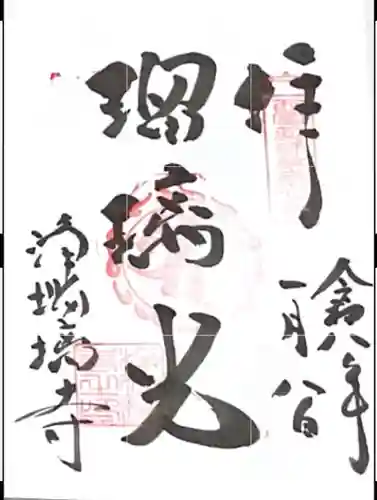 拝
令和八年
一月八日
瑠璃光
浄瑠璃寺